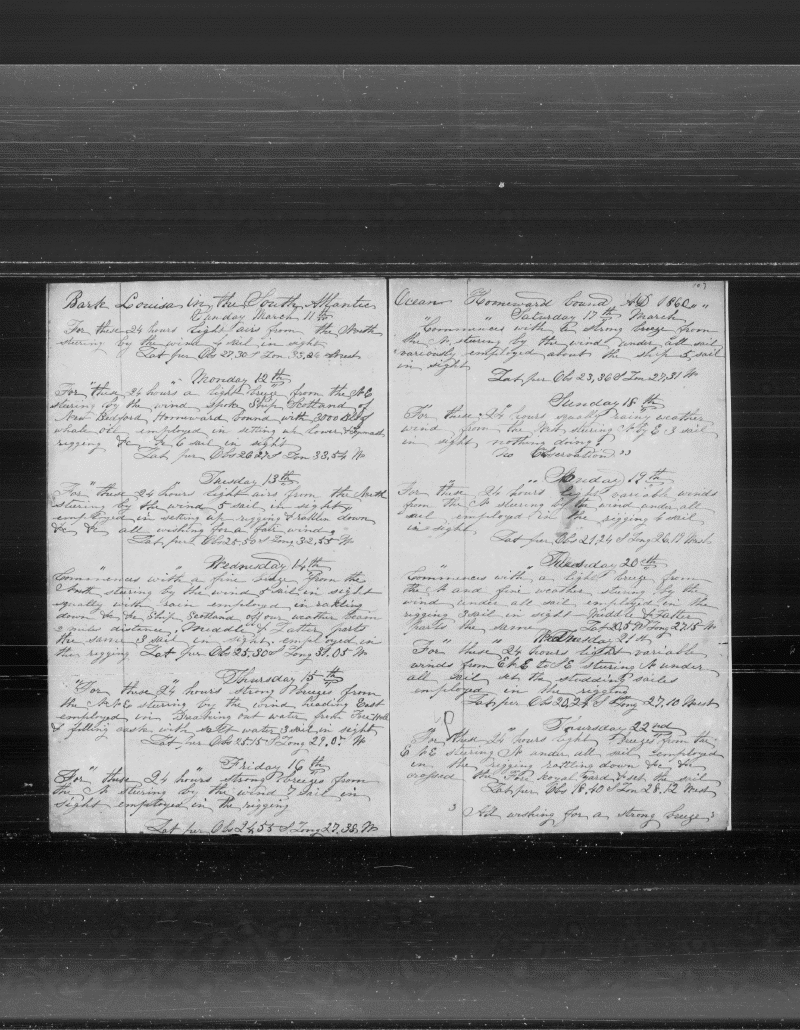 Bark Louisa in the South Atlantic
Sunday March 11th
For these 24 hours light airs from the North
sturing by the wind 4 sail in sight
Lat per Obs 27.30 S Lon 33.26 West
Monday 12th
For these 24 hours a light breze from the N E
sturing by the wind spoke Ship Scotland of
New Bedford, homward bound with 3000 bbls
whale oil employed in setting up lower &
rigging &c &c 6 sail in sight
Lat per Obs 26.27 S Lon 33,54 W
Tuesday 13th
For these 24 hours light airs from the North
sturing by the wind 5 sail in sight
employed in setting up rigging & ratlin down
&c &c all wishing for a fair wind
Lat per Obs 25.50 S Long 32,55 W
Wednesday 14th
Commences with a fine breze from the
North sturing by the wind 5 sail in sight
squally with rain employed in ratling
down &c &c Ship Scotland off our weather beam
2 miles distance, Middle & Latter parts
the same 3 sail in sight, employed in
the rigging Lat per Obs 25.30 S Long 31.05 W
Thursday 15th
For these 24 hours strong breezes from
the N N E sturring by the wind heading East
employed in Breaking out water from Fore Hole
& filling casks with salt water 3 sail in sight
Lat per Obs 25.15 S Long 29.07 W
Friday 16th
For these 24 hours strong breezes from
the N sturing by the wind 7 sail in
sight employed in the rigging
Lat per Obs 24,55 S Long 27.38, W
107
Ocean Homeward bound AD 1860
Saturday 17th March
Commences with a strong breeze from
the N sturing by the wind under all sail
variously employed about the ship 5 sail
in sight
Lat per Obs 23,36 S Lon 27,31 W
Sunday 18th
For these 24 hours squaly rainy weather
wind from the sturing N by E 3 sail
in sight nothing doing
No Observation
Monday 19th
For these 24 hours light variable winds
from the N sturing by the wind under all
sail employed in the rigging 4 sail
in sight
Lat per Obs 21,24 S Long 26.19 West
Tuesday 20th
Commences with a light breze from
the N and fine weather sturing by the
wind under all sail employed in the
rigging 3 sail in sight Middle & Latter
parts the same Lat Long 27.15 W
Wednesday 21st
For these 24 hours light variable
winds from E N E to S E sturing N under
all sail set the studding sailes
employed in the rigging
Lat per Obs 20,24 S Long 27,10 West
Thursday 22nd
For these 24 hours light Breezes from the
E N E sturing N under all sail employed
in the rigging rattling down &c &c
crossed the Fore Royal yard & set the sail
Lat per Obs 18,40 S Lon 28.12 West
All wishing for a strong breeze